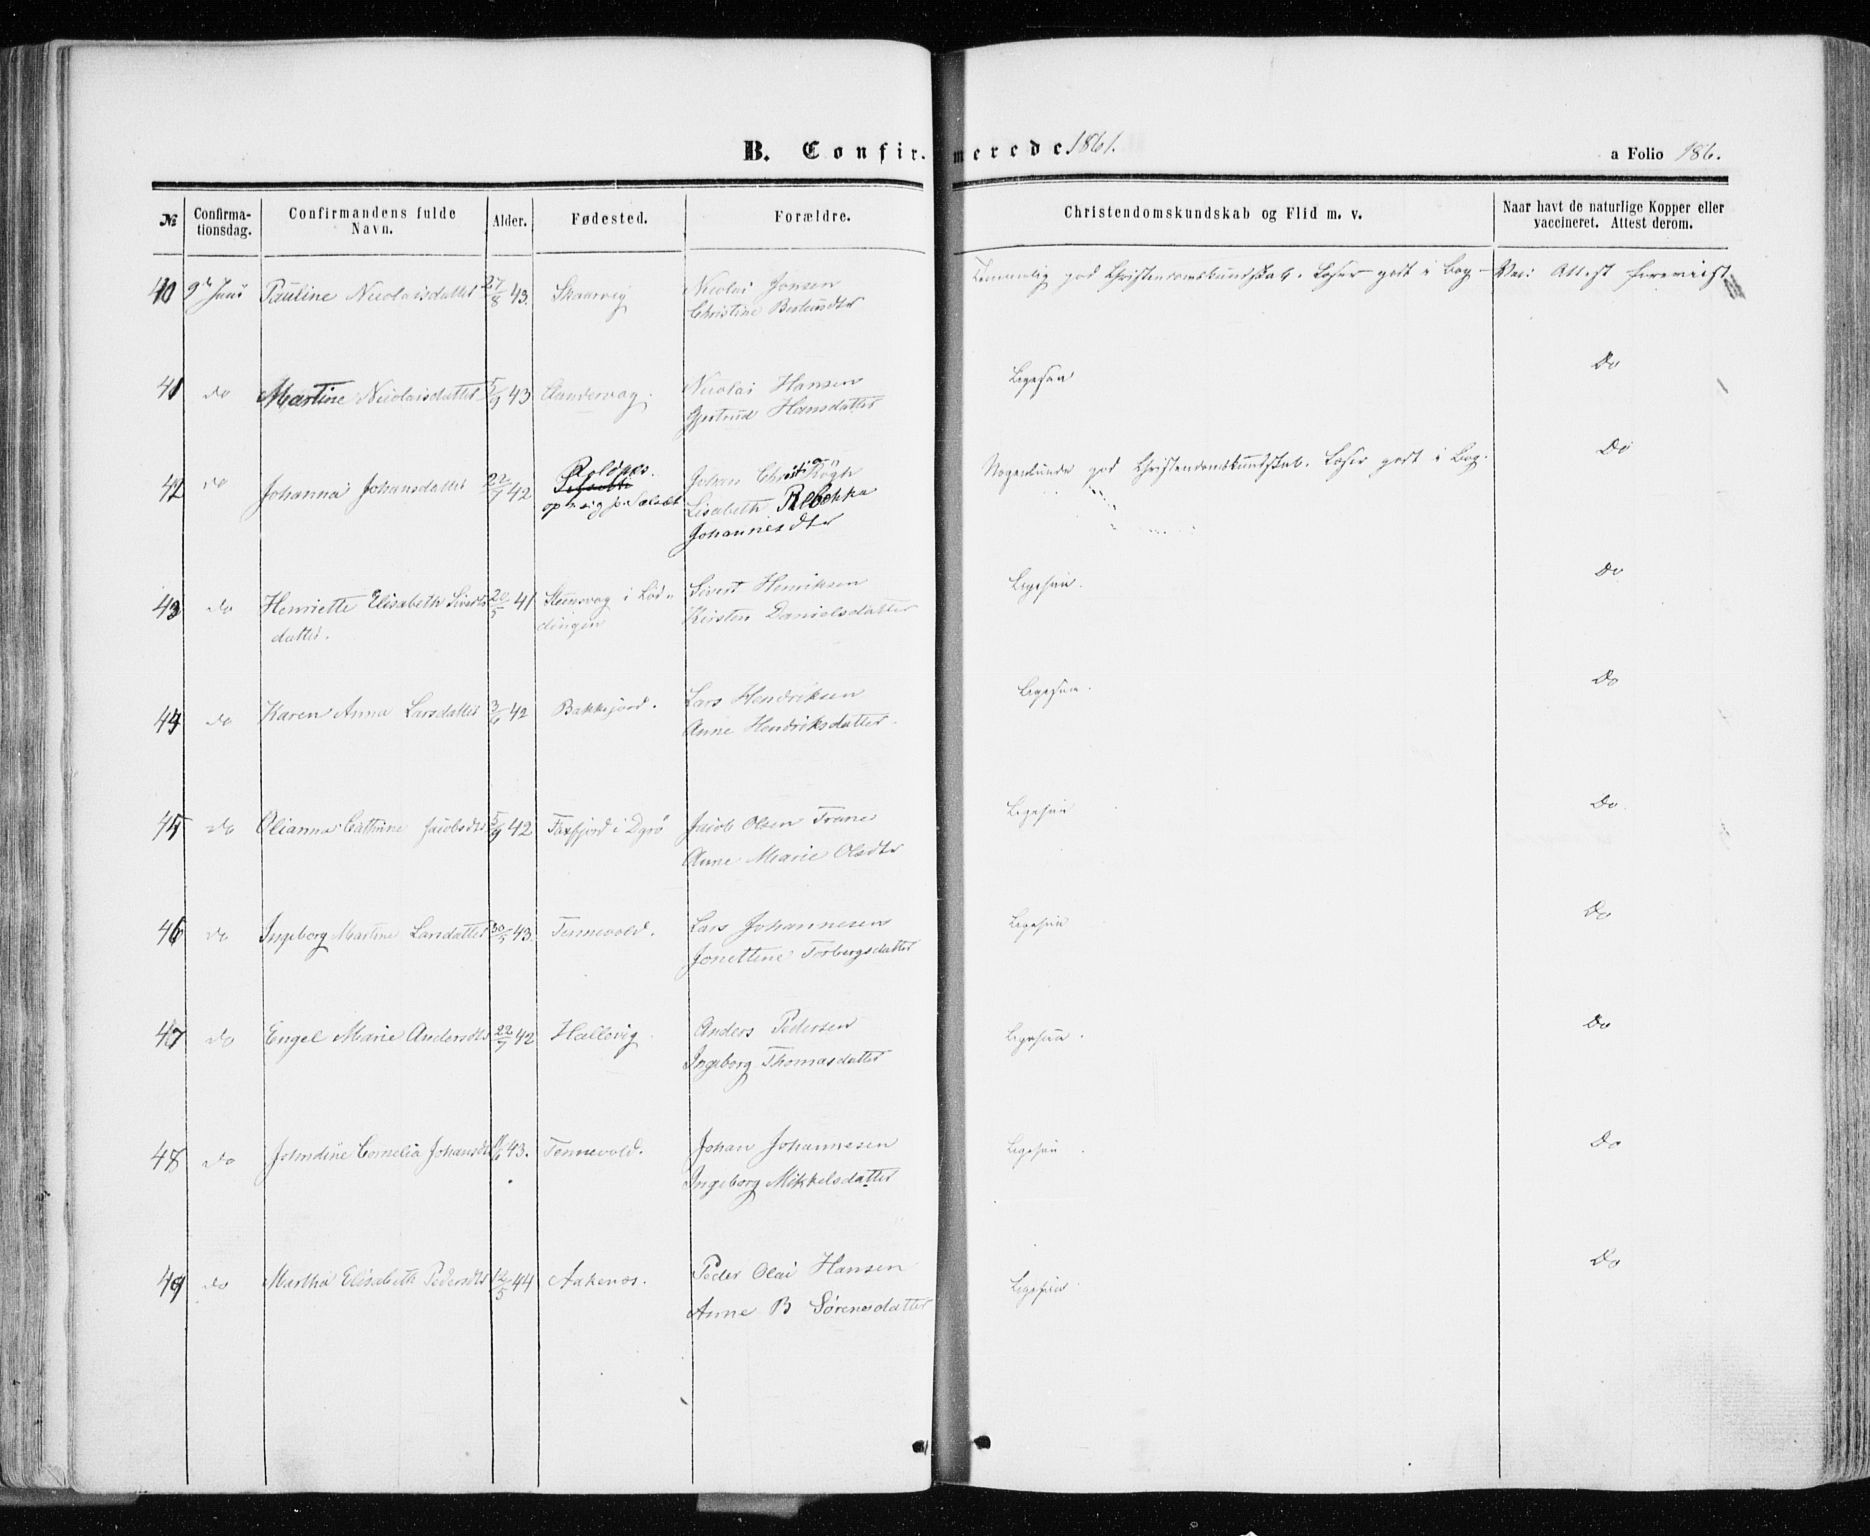 B. Confirmerede 1861.
a Folio 186.
№ Confirma-tionsdag. Confirmandens fulde Navn. Alder. Fødested. Forældre. Christendomskundskab og Flid m. v. Naar havt de naturlige Kopper eller vaccineret. Attest derom.
40 9de Juni Pauline Nicolaisdatter 27/8 43. Skaarvig Nicolai Jonsen Temmelig god Christendomskundskab. Læser godt i Bog. Vac: Attest foreviist
Christine
41 do Martine Nicolaisdatter 5/9 43 Nicolai Hansen Ligesaa Do
Gjertrud Hansdatter
42 do Johanna Johansdatter 22/7 42 Johan Nogenlunde god Christendomskundskab. Læser godt i Bog. Do
Lisabeth Rebekka
Johannesdtr
43 do Henriette Elisabeth Siverts 20/5 41 Steensvag i Lød- Sivert Henriksen Ligesaa. Do
datter. dingen Kirsten Danielsdatter
44 do Karen Anna Larsdatter 3/6 42 Bakkejord. Lars Hendriksen Ligesaa. Do
Anne Hendriksdatter.
45 do Olianna Cathrine Jacobsdtr 5/9 42 Faxfjord i Dyrø Jacob Olsen Trane Ligesaa Do
Anne Marie Olsdtr
46 do Ingeborg Martine Larsdatter 30/5 43. Tennevold. Lars Johannesen Ligesaa Do
Jonettine Torbergsdatter
47 do Engel Marie Andersdtr 22/7 42 Hallevig Anders Pedersen Ligesaa. Do
Ingeborg Thomasdatter
48 do Cornelia Johansdtr 43. Tennevold. Johan Johannesen Ligesaa Do
Ingeborg Mikkelsdatter
49 do Martha Elisabeth Pedersdtr 12/5 44 Aakenes. Peder Olai Hansen Ligesaa Do
Anne B Sørensdatter